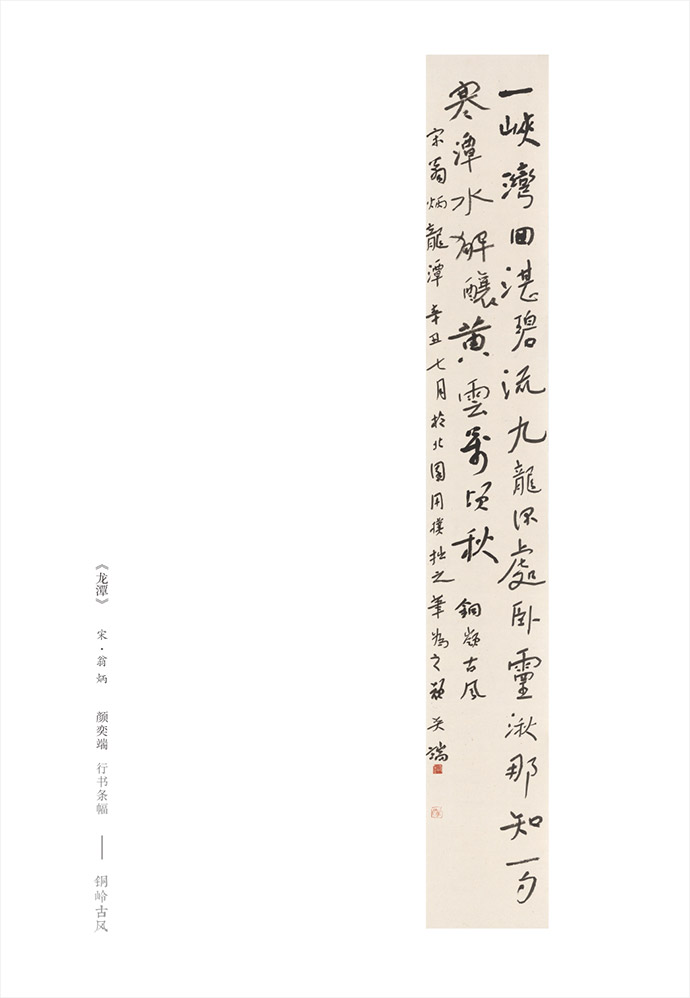 一峽灣回湛碧流九龍深處臥靈湫那知一勺
寒潭水解釀黃雲萬頃秋 銅嶺古风
宋翁炳龍潭 辛丑七月於北園用樸拙之筆為之顏奕端
《龙潭》 宋·翁炳 颜奕端 行书条幅 —— 铜岭古风